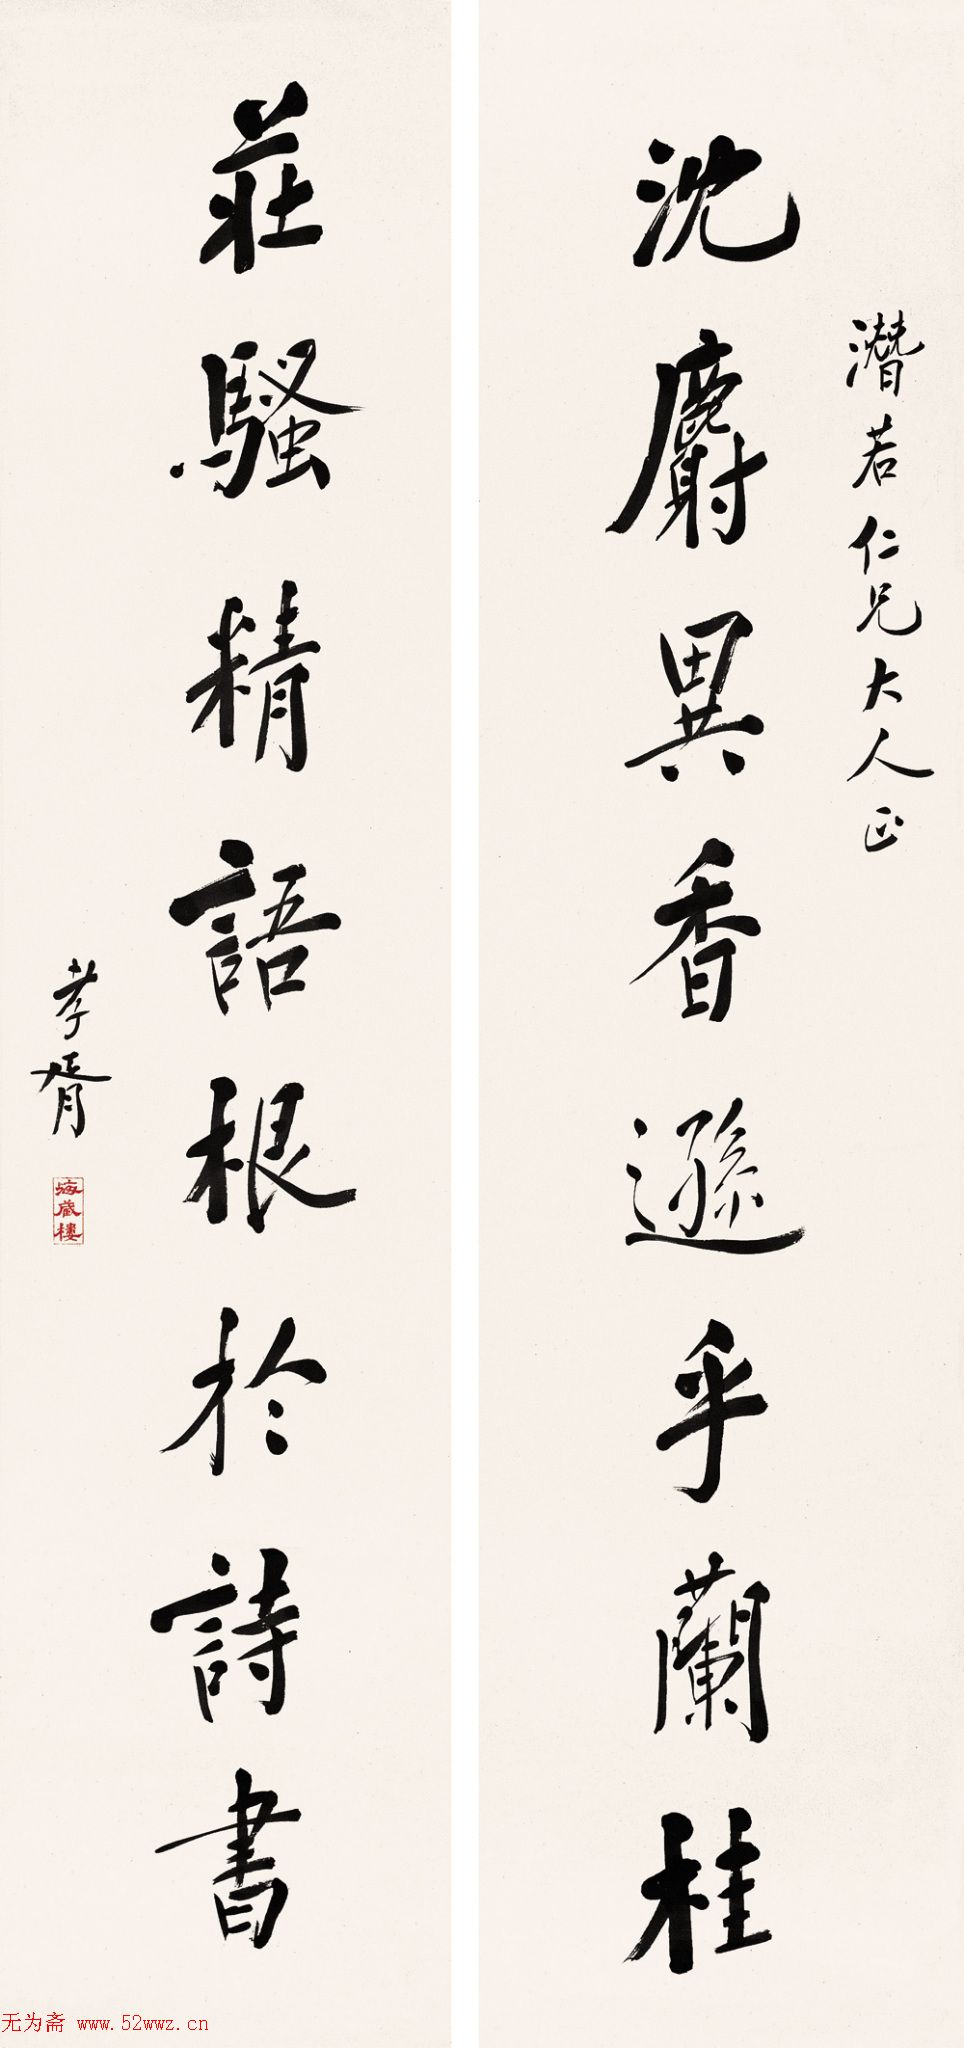 潛若仁兄大人正
沈麝異香遜乎蘭桂
莊騷精語根於詩書
孝胥
海藏樓
无为斋 www.52wwz.cn